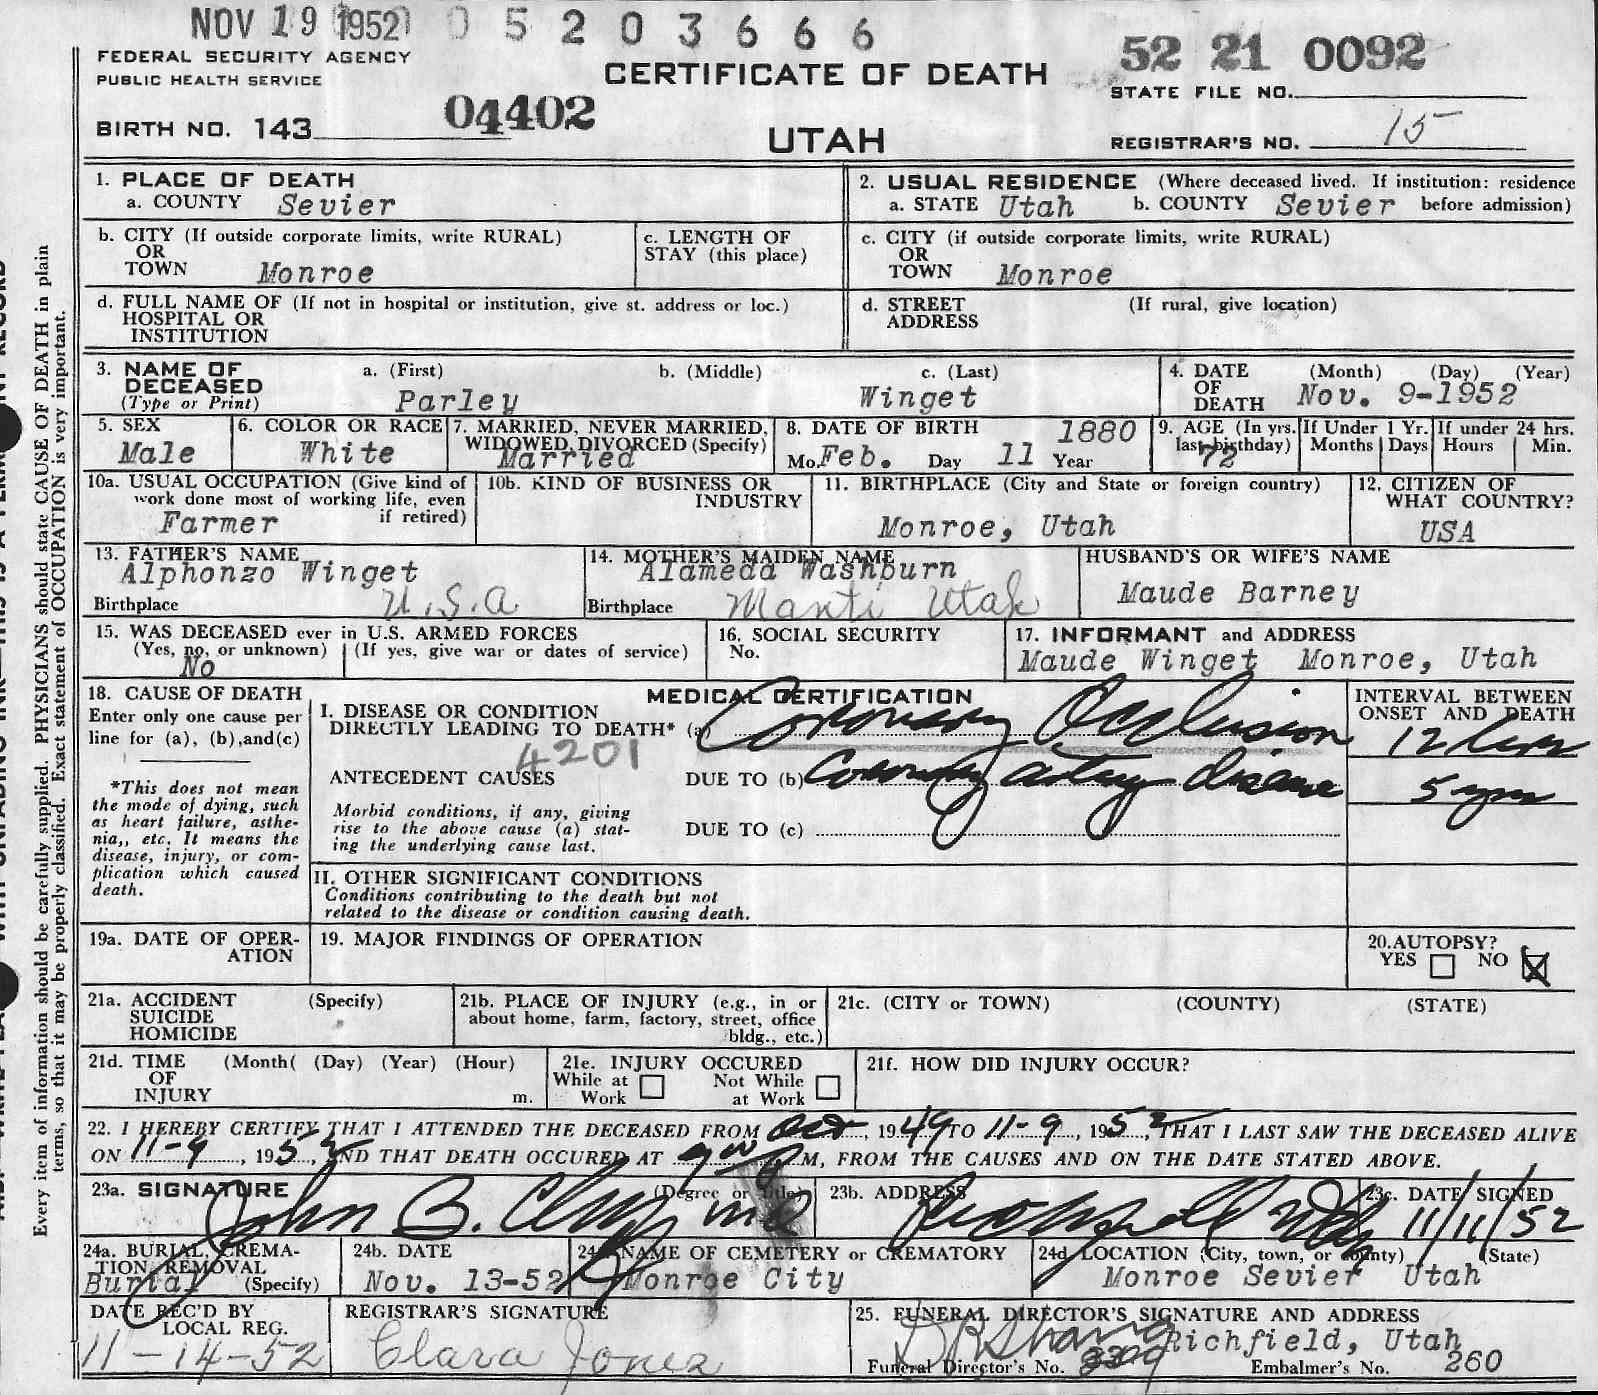 NOV 19 1952 0 5 2 0 3 6 6 6
FEDERAL SECURITY AGENCY
PUBLIC HEALTH SERVICE
CERTIFICATE OF DEATH
52 21 0092
STATE FILE NO.
BIRTH NO. 143 04402
UTAH
REGISTRAR'S NO. 15
1. PLACE OF DEATH
a. COUNTY Sevier
2. USUAL RESIDENCE (Where deceased lived. If institution: residence
a. STATE Utah b. COUNTY Sevier before admission)
b. CITY (If outside corporate limits, write RURAL)
OR
TOWN Monroe
c. LENGTH OF
STAY (this place)
c. CITY (if outside corporate limits, write RURAL)
OR
TOWN Monroe
d. FULL NAME OF (If not in hospital or institution, give st. address or loc.)
HOSPITAL OR
INSTITUTION
d. STREET (If rural, give location)
ADDRESS
3. NAME OF a. (First) b. (Middle) c. (Last)
DECEASED
(Type or Print) Parley Winget
4. DATE (Month) (Day) (Year)
OF
DEATH Nov. 9-1952
5. SEX
Male
6. COLOR OR RACE
White
7. MARRIED, NEVER MARRIED,
WIDOWED, DIVORCED (Specify)
Married
8. DATE OF BIRTH 1880
Mo. Feb. Day 11 Year
9. AGE (In yrs.
last birthday)
72
If Under 1 Yr.
Months Days
If under 24 hrs.
Hours Min.
10a. USUAL OCCUPATION (Give kind of
work done most of working life, even
if retired)
Farmer
10b. KIND OF BUSINESS OR
INDUSTRY
11. BIRTHPLACE (City and State or foreign country)
Monroe, Utah
12. CITIZEN OF
WHAT COUNTRY?
USA
13. FATHER'S NAME
Alphonzo Winget
Birthplace U.S.A
14. MOTHER'S MAIDEN NAME
Alameda Washburn
Birthplace Manti Utah
HUSBAND'S OR WIFE'S NAME
Maude Barney
15. WAS DECEASED ever in U.S. ARMED FORCES
(Yes, no, or unknown) (If yes, give war or dates of service)
No
16. SOCIAL SECURITY
No.
17. INFORMANT and ADDRESS
Maude Winget Monroe, Utah
18. CAUSE OF DEATH
Enter only one cause per
line for (a), (b),and(c)
*This does not mean
the mode of dying, such
as heart failure, asthe-
nia,, etc. It means the
disease, injury, or com-
plication which caused
death.
MEDICAL CERTIFICATION
I. DISEASE OR CONDITION
DIRECTLY LEADING TO DEATH* (a) Coronary Occlusion
4201
ANTECEDENT CAUSES DUE TO (b) Coronary artery disease
Morbid conditions, if any, giving
rise to the above cause (a) stat-
ing the underlying cause last.
DUE TO (c)
INTERVAL BETWEEN
ONSET AND DEATH
12 hrs
5 yrs
II. OTHER SIGNIFICANT CONDITIONS
Conditions contributing to the death but not
related to the disease or condition causing death.
19a. DATE OF OPER-
ATION
19. MAJOR FINDINGS OF OPERATION
20.AUTOPSY?
YES NO
21a. ACCIDENT (Specify)
SUICIDE
HOMICIDE
21b. PLACE OF INJURY (e.g., in or
about home, farm, factory, street, office
bldg., etc.)
21c. (CITY or TOWN) (COUNTY) (STATE)
21d. TIME (Month( (Day) (Year) (Hour)
OF
INJURY m.
21e. INJURY OCCURED
While at Not While
Work at Work
21f. HOW DID INJURY OCCUR?
22. I HEREBY CERTIFY THAT I ATTENDED THE DECEASED FROM Oct, 1949 TO 11-9, 1952, THAT I LAST SAW THE DECEASED ALIVE
ON 11-9, 1952, AND THAT DEATH OCCURED AT M, FROM THE CAUSES AND ON THE DATE STATED ABOVE.
23a. SIGNATURE (Degree or title)
John B.
23b. ADDRESS
23c. DATE SIGNED
11/11/52
24a. BURIAL, CREMA-
TION, REMOVAL
Burial (Specify)
24b. DATE
Nov. 13-52
24c NAME OF CEMETERY or CREMATORY
Monroe City
24d LOCATION (City, town, or county) (State)
Monroe Sevier Utah
DATE REC'D BY
LOCAL REG.
11-14-52
REGISTRAR'S SIGNATURE
Clara Jones
25. FUNERAL DIRECTOR'S SIGNATURE AND ADDRESS
Richfield, Utah
Funeral Director's No. Embalmer's No. 260
Every item of information should be carefully supplied. PHYSICIANS should state CAUSE OF DEATH in plain
terms, so that it may be properly classified. Exact statement of OCCUPATION is very important.